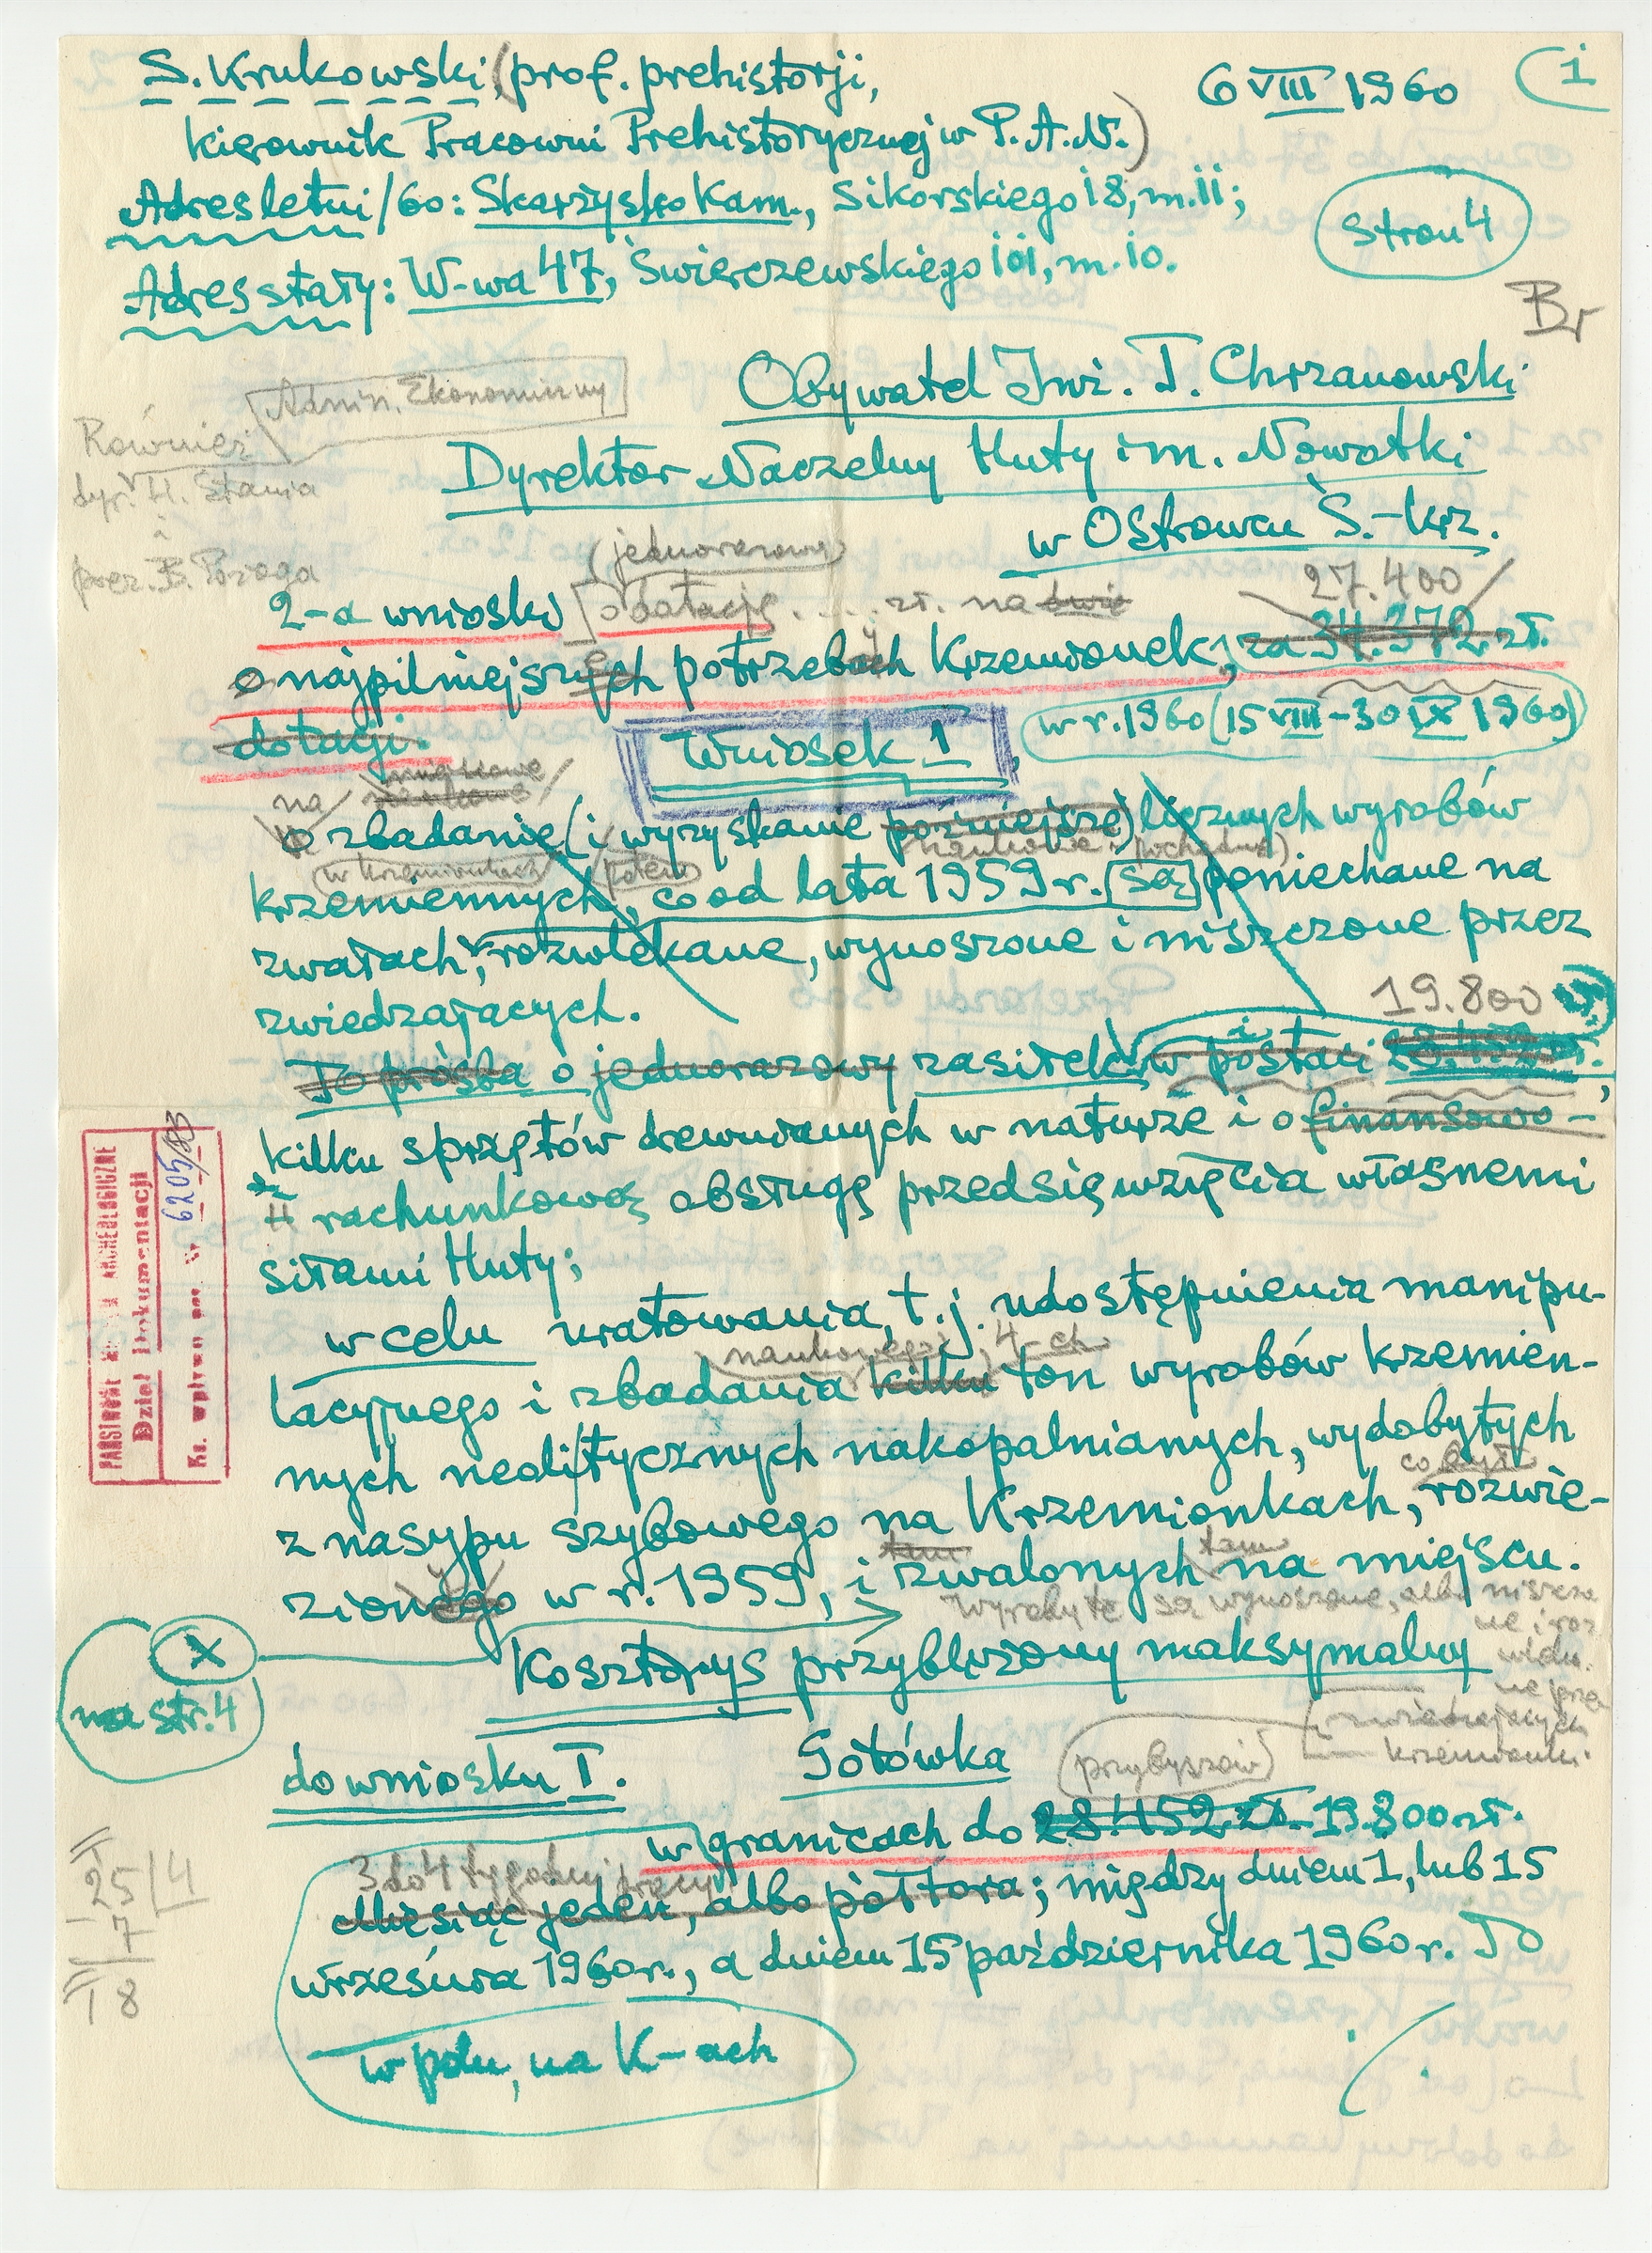 S. Krukowski, (prof. prehistorji,
6 VIII 1960
1
kierownik Pracowni Prehistorycznej w P. A. N.)
Adres letni/60: Skarżysko Kam., Sikorskiego 18, m. 11;
stron 4
Adres stały: W-wa 47, Świerczewskiego 101, m. 10.
Br
Obywatel Inż. T. Chrzanowski
Admin. Ekonomiczny
Również
Dyrektor Naczelny Huty im. Nowotki
dyr. H. Stania
w Ostrowcu Ś.-krz.
i
(jednorazową)
prez. B.
27.400
2-a wnioski o dotację .... zł. na dwie
o najpilniejszych potrzebach Krzemionek, za 34.372 zł.
dotacji.
Wniosek I,
w r. 1960 (15 VIII - 30 IX 1960)
na
o zbadanie (i wyzyskanie późniejsze) licznych wyrobów
potem
krzemiennych, co od lata 1959 r. [są] poniechane na
zwałach, rozwlekane, wynoszone i niszczone przez
zwiedzających.
19.800 zł.
To prośba o jednorazowy zasiłek w postaci
kilku sprzętów drewnianych w naturze i o finansowo-
rachunkową obsługę przedsięwzięcia własnemi
siłami Huty;
w celu uratowania, t. j. udostępnienia manipu-
naukowego 4-ch
lacyjnego i zbadania kilku ton wyrobów krzemien-
nych neolitycznych nakopalnianych, wydobytych
co był
z nasypu szybowego na Krzemionkach, rozwie-
tam tam
zionego w r. 1959, i zwalonych na miejscu.
Wyroby te są wynoszone, albo niszczo
ne i roz
x
na str. 4
Kosztorys przybliżony maksymalny
wleka
ne prze
zwiedzających
krzemionki.
przybyszów
do wniosku I. Gotówka
w granicach do 28.452 zł. 19.800 zł.
3 do 4 tygodni pracy
Miesiąc jeden, albo półtora; między dniem 1, lub 15
września 1960 r., a dniem 15 października 1960 r. To
w polu, na K-ach
25 | 4
- 7
18
./.
PAŃSTWOWE MUZEUM ARCHEOLOGICZNE
Dział Dokumentacji
Ks. wpływu poz. Nr 6205/83